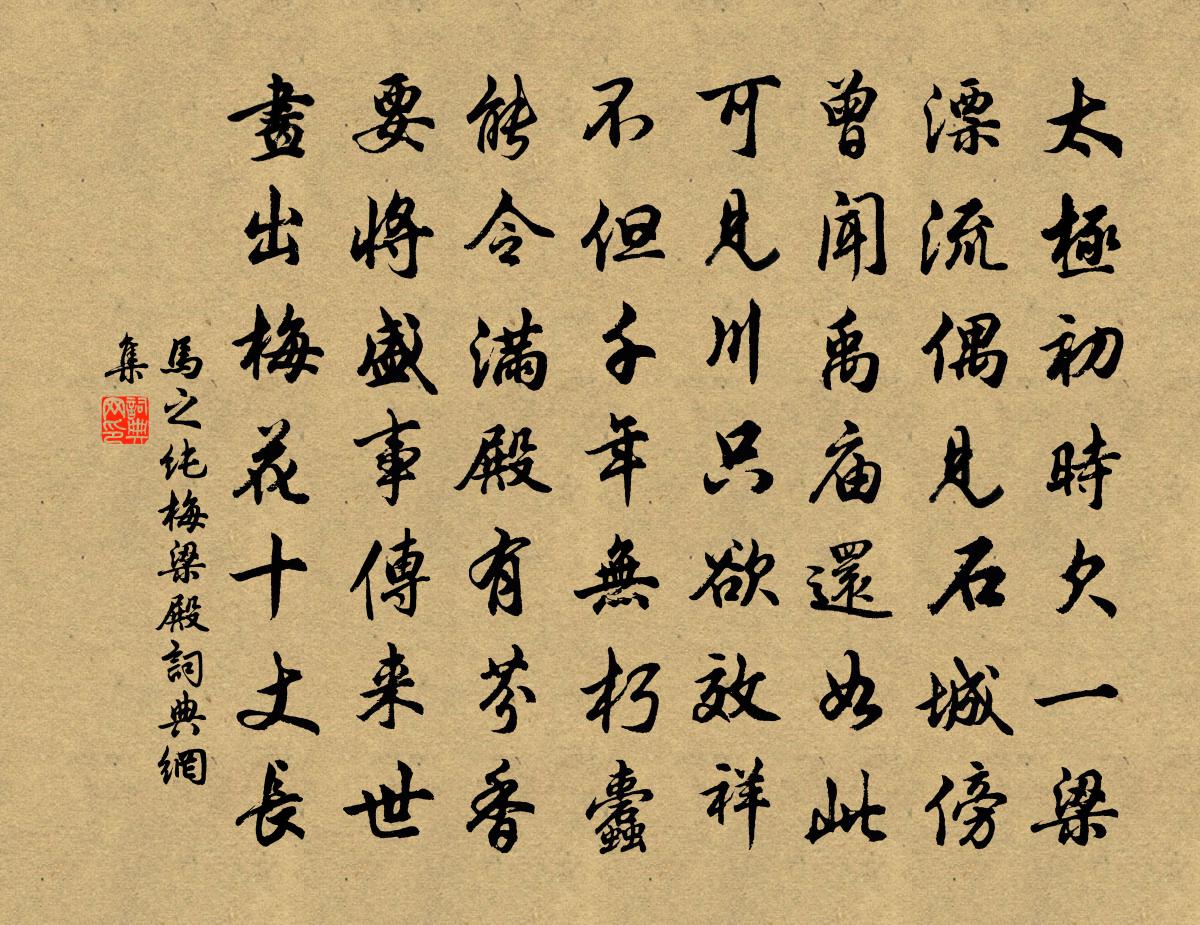 太極初時欠一梁
漂流偶見石城傍
曾聞禹廟還如此
可見川只欲效祥
不但千年無朽蠹
能令滿殿有芬香
要將盛事傳来世
畫出梅花十丈長
馬之純梅梁殿詞典網
集
詞典
网印